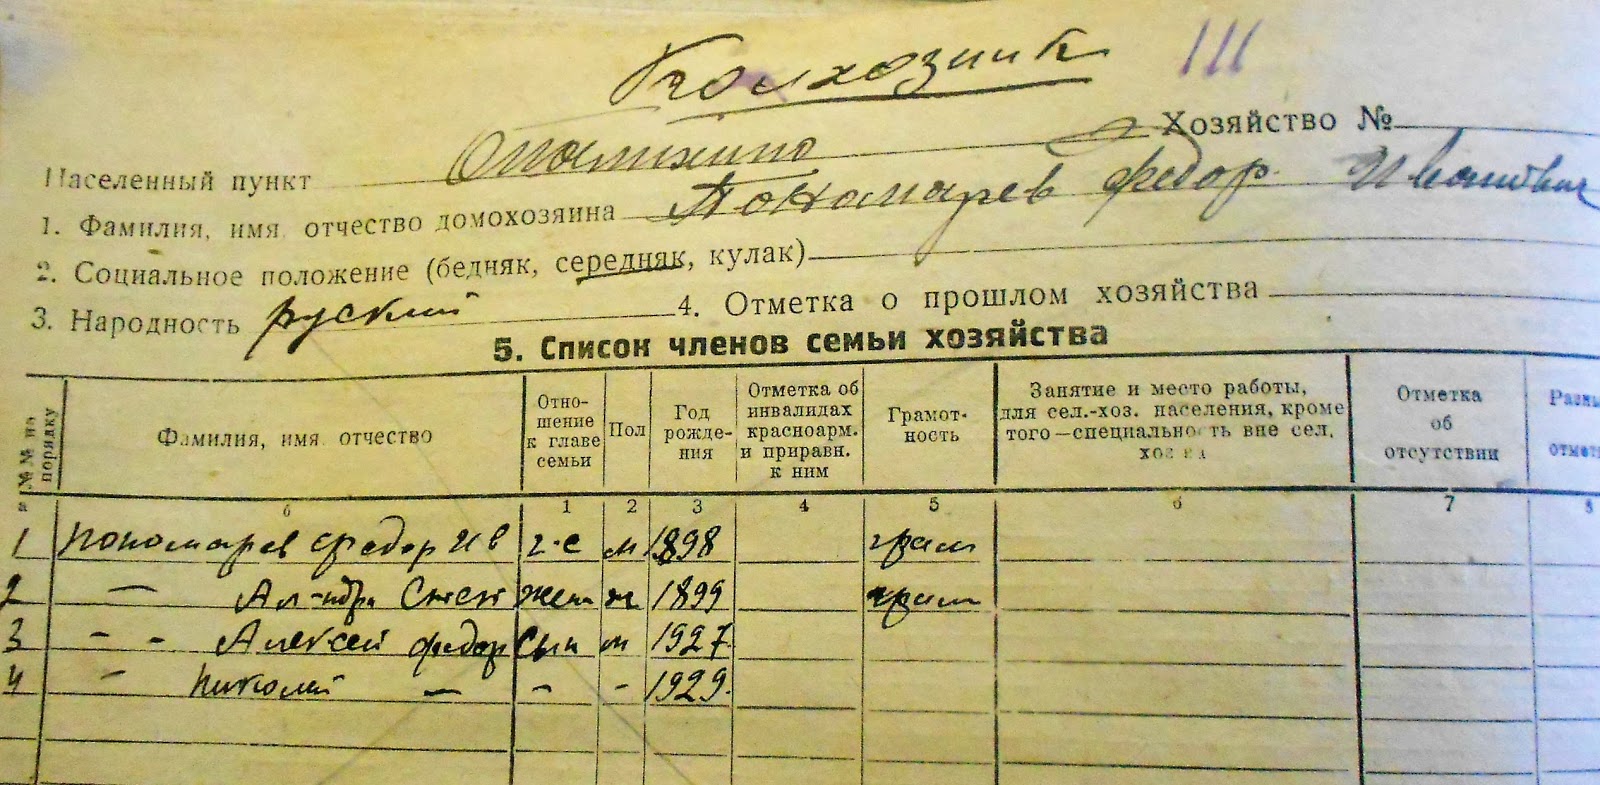 Колхозник 111
Хозяйство №
Населенный пункт
1. Фамилия, имя отчество домохозяина Пономарев Федор Иванович
2. Социальное положение (бедняк, середняк, кулак)
3. Народность руский 4. Отметка о прошлом хозяйства
5. Список членов семьи хозяйства
№№ по порядку Фамилия, имя отчество Отношение к главе семьи Пол Год рождения Отметка об инвалидах красноарм. и приравн. к ним Грамотность Занятие и место работы, для сел.-хоз. населения, кроме того—специальность вне сел. хоз Отметка об отсутствии
а б 1 2 3 4 5 6 7 8
1 Пономарев Федор Ив г-с м 1898 грам
2 — Ал-ндра Степ жена ж 1899 грам
3 - - Алексей Федор Сын м 1927
4 - Николай — - - 1929